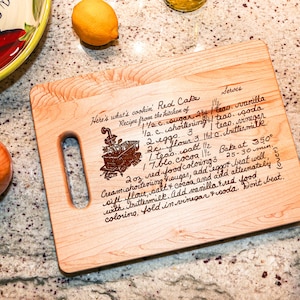 Here's what's cookin' Red Cake Serves
Recipe from the kitchen of
1 1/2 c. sugar 1 teas. vanilla
1/2 c. shortening 1 teas. soda
2 eggs 1 teas. vinegar
2 c. flour 1 c. buttermilk
1 teas. salt
1 tbls cocoa Bake at 350°
2 oz red food coloring 25-30 min
Cream shortening, sugar, add eggs, beat well,
sift flour, salt & cocoa and add alternately
with buttermilk. Add vanilla & red food
coloring, fold in vinegar & soda. Don't beat.